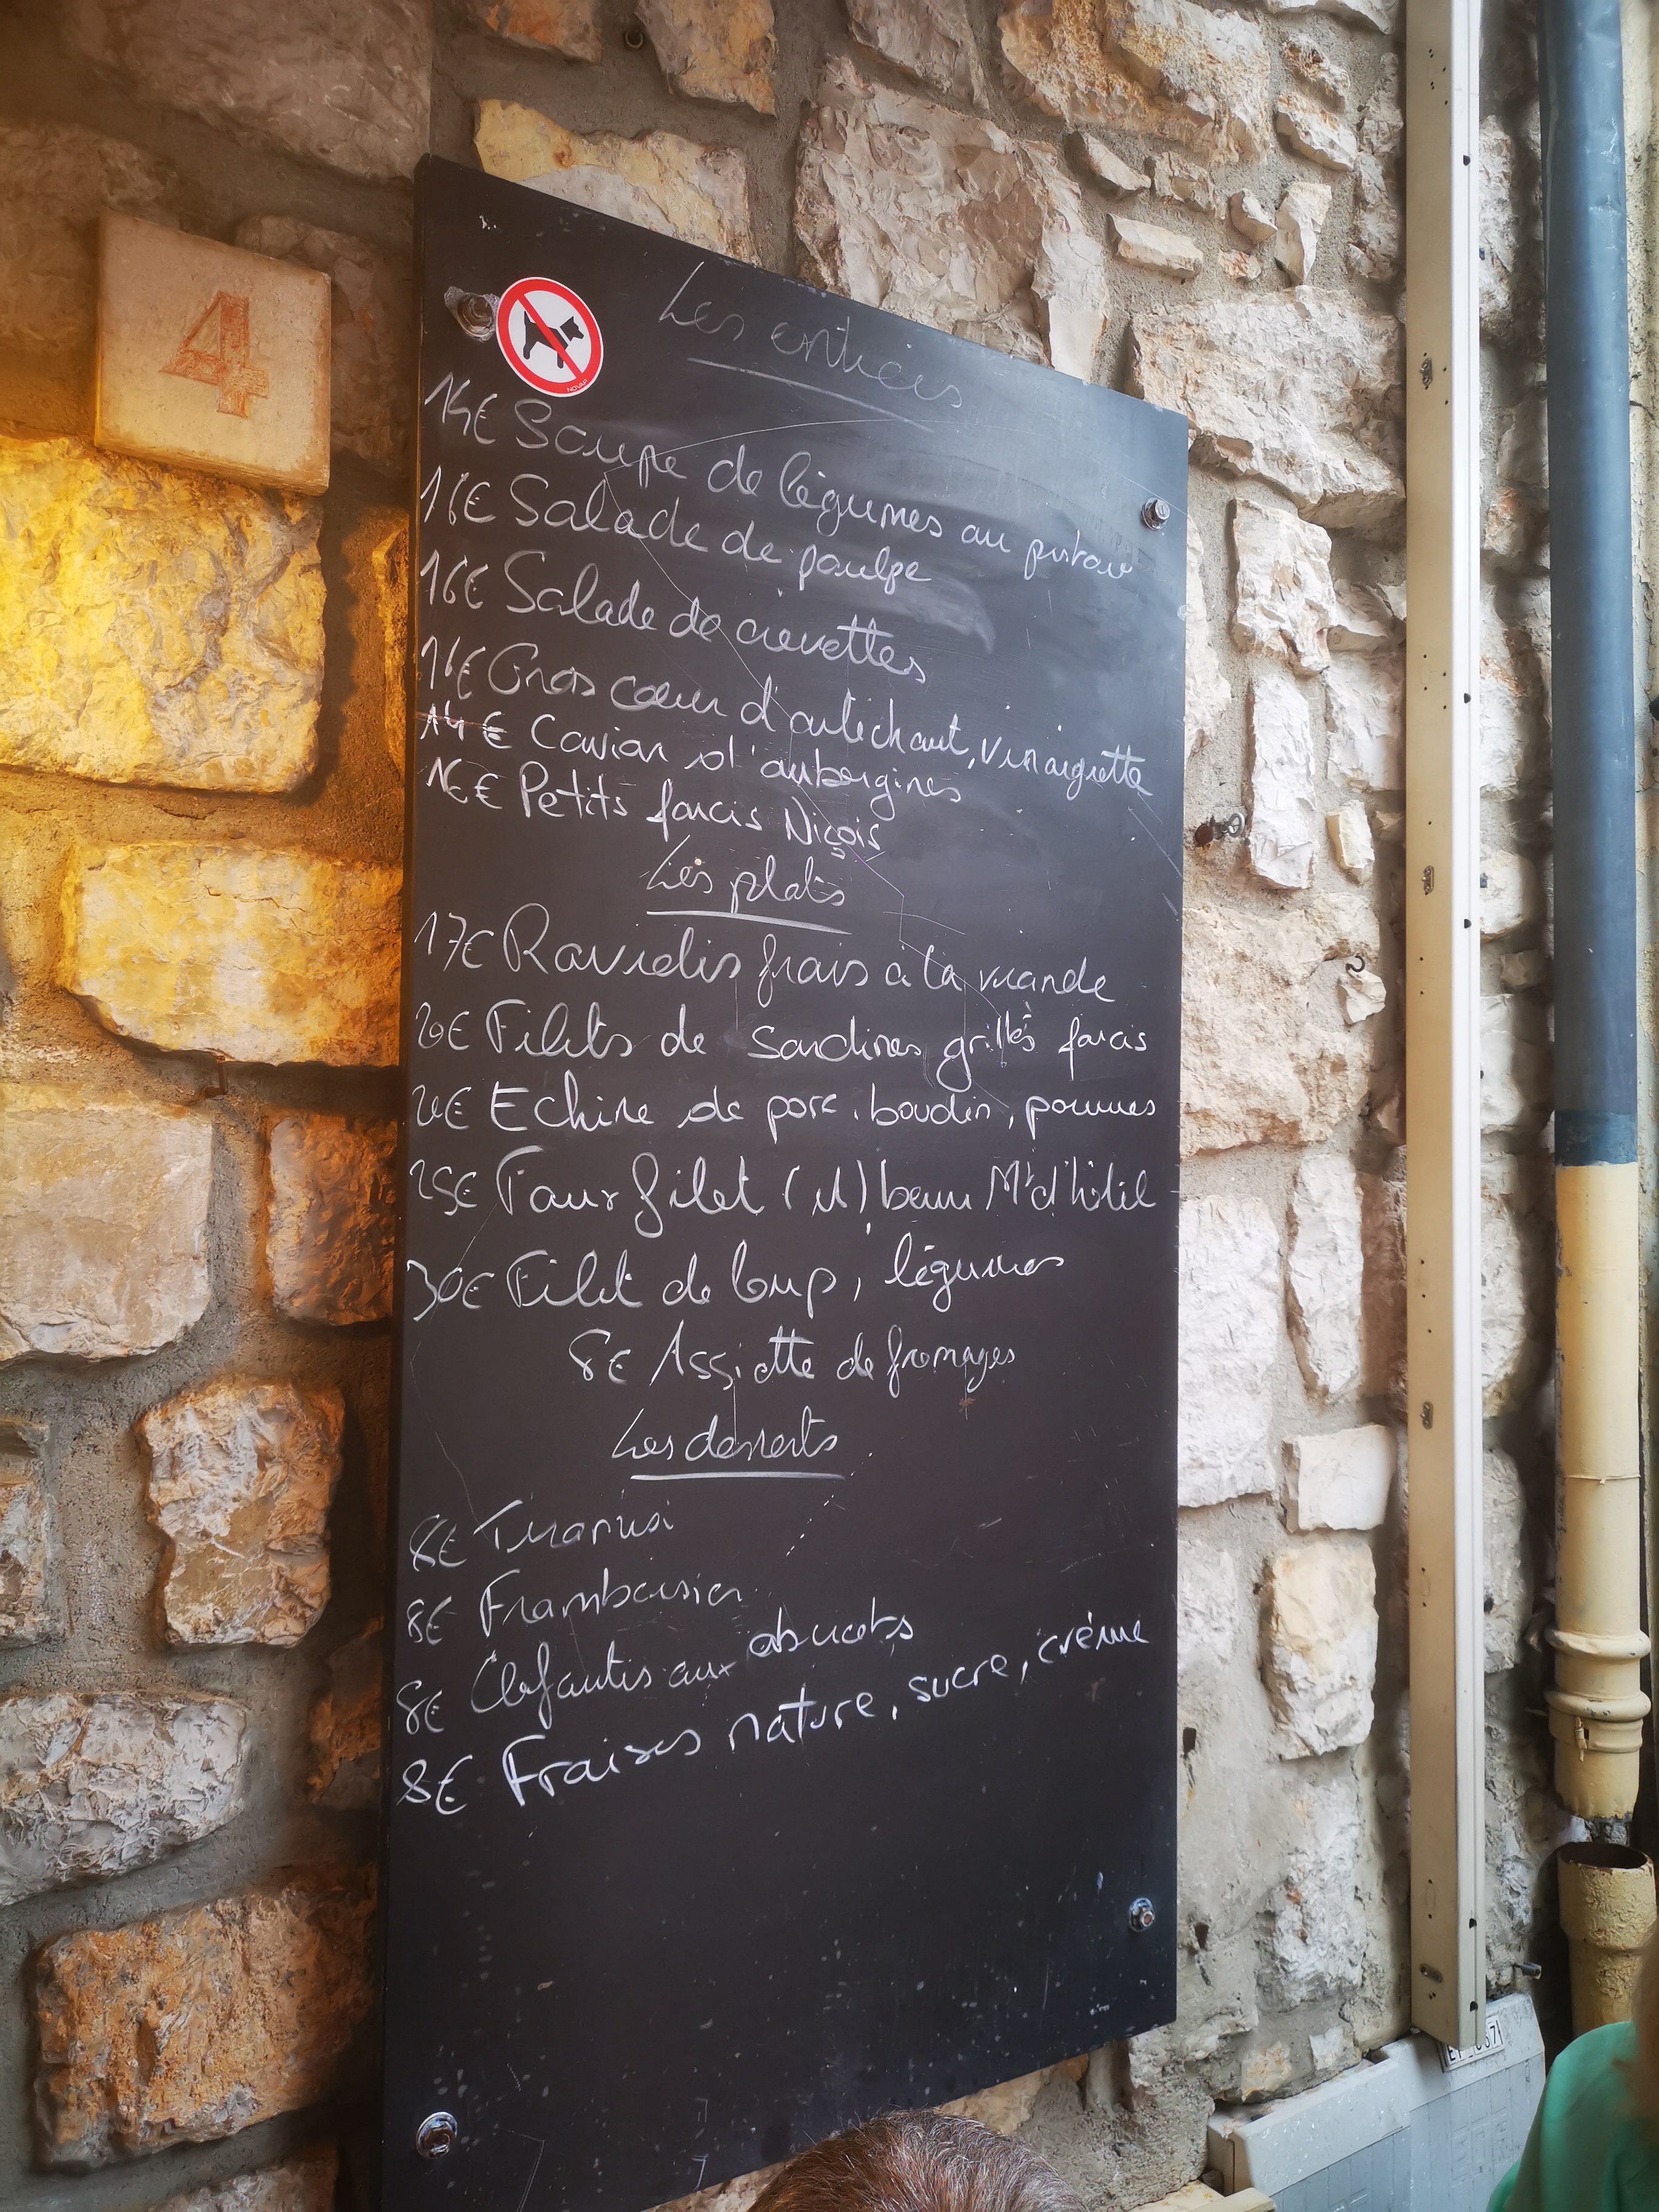 4
NOVAP
Les entrées
14€ Soupe de légumes au pistou
16€ Salade de poulpe
16€ Salade de crevettes
16€ Gros cœur d'artichaut, vinaigrette
14€ Caviar d'aubergines
16€ Petits farcis Niçois
Les plats
17€ Raviolis frais à la viande
20€ Filets de sardines grillés farcis
Echine de porc, boudin, pommes
25€ Faux filet beurre Mᵗ d'hôtel
30€ Filet de loup, légumes
8€ Assiette de fromages
Les desserts
8€ Tiramisu
8€ Framboisier
8€ Clafoutis aux abricots
8€ Fraises nature, sucre, crème